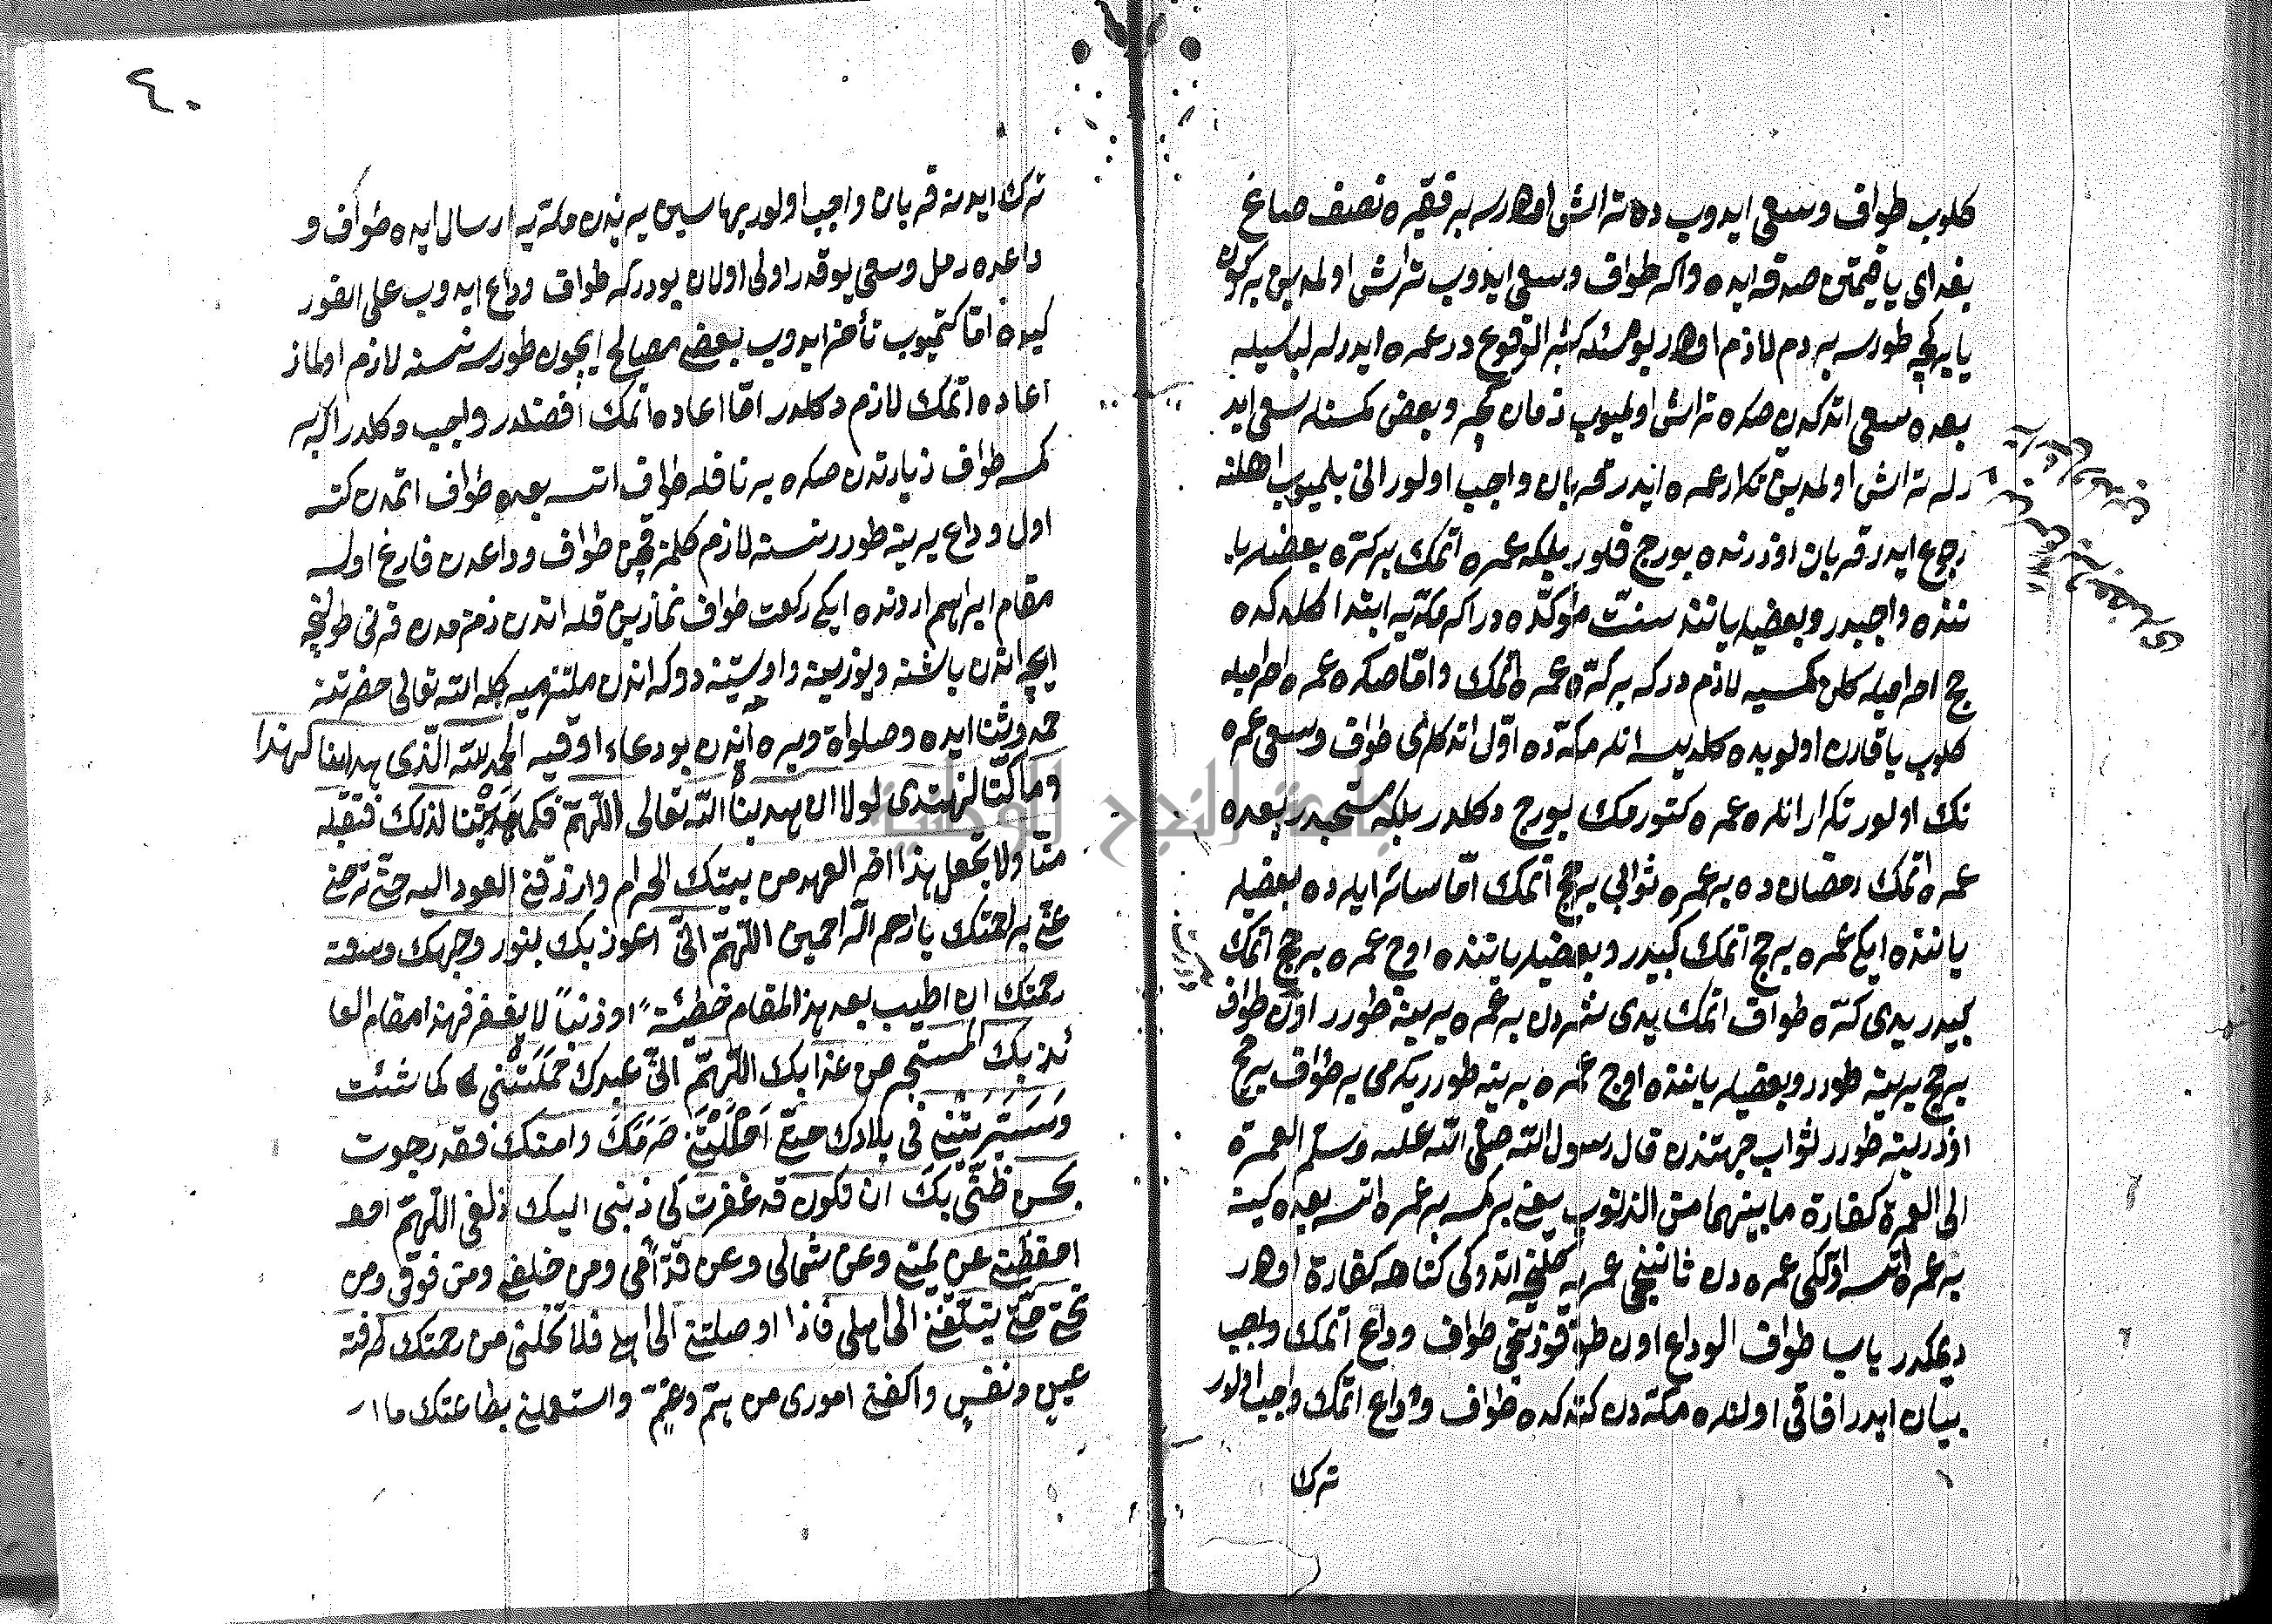 كلوب طواف وسعى ايدوب ده تراش اولورسه بر فقيره نصف صاع
بغداى يا قيمتن صدقه ايده واكر طواف وسعى ايدوب تراش اولمدين بر كون
يا بر كيجه طورسه بر دم لازم اولور بو مسئله كثير الوقوع در عمره ايدرلر لباسيله
بعده سعى اتدكدن صكره تراش اولميوب زمان كچر وبعض كمسنلر سعى ايد
رلر تراش اولمدين تكرار عمره ايدر قربان واجب اولور انى بلميوب اهلنه
رجوع ايدر قربان اوزرنده بورج قلور بلكه عمره اتمك بر كره بعضيلر يا
ننده واجبدر وبعضيلر ياننده سنت مؤكده در اكر مكه يه ابتدا كلدكده
حج احراميله كلن كمسيه لازم در كه بر كره عمره اتمك واما صكره عمره احراميله
كلوب يا قارن اولوبده كلديسه انلر مكه ده اول اتدكلرى طواف وسعى عمره
نك اولور تكرار انلره عمره كتورمك بورج دكلدر بلكه مستحبدر بعده
عمره اتمك رمضان ده بر عمره ثوابى بر حج اتمك اما سائر ايلرده بعضيلر
ياننده ايكى عمره بر حج اتمك كبيدر وبعضيلر ياننده اوچ عمره بر حج اتمك
كبيدر يدى كره طواف اتمك يدى شهردن بر عمره يرينه طورر اون طواف
بر حج يرينه طورر وبعضيلر ياننده اوچ عمره يرينه طورر يكرمى بر طواف بر حج
اوزرينه طورر ثواب جهتندن قال رسول الله صلى الله عليه وسلم العمرة
الى العمرة كفارة ما بينهما من الذنوب يعنى بر كمسه بر عمره اتسه بعده كينه
بر عمره اتسه اولكى عمره دن ثانينجى عمره يه كلنجه اتدوكى كناهه كفارة اولور
ديمكدر باب طواف الوداع اون طقوزنجى طواف وداع اتمك واجب
بيان ايدر افاقى اولنلره مكه دن كتدكده طواف وداع اتمك واجب اولور
ترك
ترك ايدنه قربان واجب اولور بهاسين يرندن مكه يه ارسال ايده طواف و
داعده رمل وسعى يوقدر اولى اولان بودركه طواف وداع ايدوب على الفور
كيده اما كتميوب تأخر ايدوب بعض مصالح ايچون طورسه نسنه لازم اولماز
اعاده اتمك لازم دكلدر اما اعاده اتمك افضلدر واجب دكلدر اكر بر
كمسه طواف زيارتدن صكره بر نافله طواف اتسه بعده طواف اتمدن كتسه
اول وداع يرينه طورر نسنه لازم كلمز قچن طواف وداعدن فارغ اولسه
مقام ابراهيم اردنده ايكى ركعت طواف نمازين قله اندن زمزمدن قرنى طولنجه
ايچه اندن باشنه ويوزينه واوستنه دوكه اندن ملتزميه كله الله تعالى حضرتنه
حمد وثنا ايده وصلواة ويره اندن بو دعاء اوقيه الحمد لله الذى هدانا لهذا
وما كنا لنهتدى لولا ان هدينا الله تعالى اللهم فكما هديتنا لذلك فتقبله
منا ولا تجعل هذا اخر العهد من بيتك الحرام وارزقنى العود اليه حتى ترضى
عنى برحمتك يا ارحم الراحمين اللهم انى اعوذ بك بنور وجهك وسعة
رحمتك ان اطيب بعد هذا المقام خطيئة او ذنبا لا يغفر فهذا مقام العا
ئذ بك المستجير من عذابك اللهم انى عبدك حملتنى كما شئت
وسيرتنى فى بلادك حتى احللتنى حرمك وامنك فقد رجوت
بحسن ظنى بك ان تكون قد غفرت لى ذنبى اليك زلفى اللهم
احفظنى عن يمينى وعن شمالى وعن قدامى ومن خلفى ومن فوقى ومن
تحتى حتى يتلقنى الى اهلى فاذا اوصلتنى الى اهلى فلا تخلنى من رحمتك طرفة
عين ونفس واكفنى امورى من هم وغم واستعملنى بطاعتك ما ا
٤٠